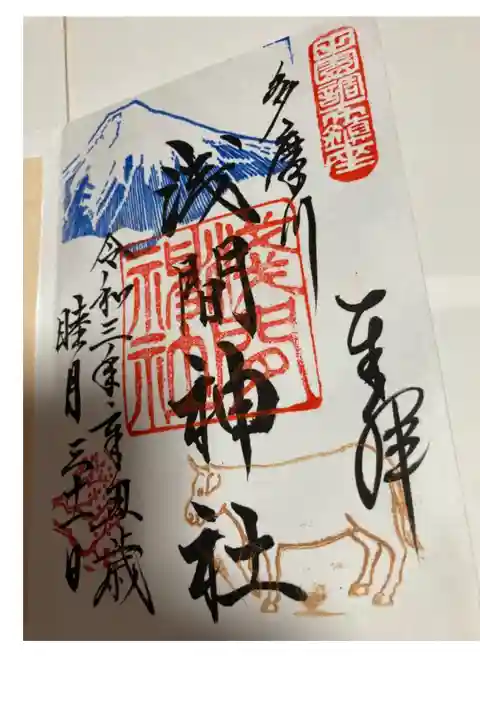 田園調布鎮座
奉拝
多摩川
浅間神社
浅間神社
令和三年辛丑歳
睦月三十一日